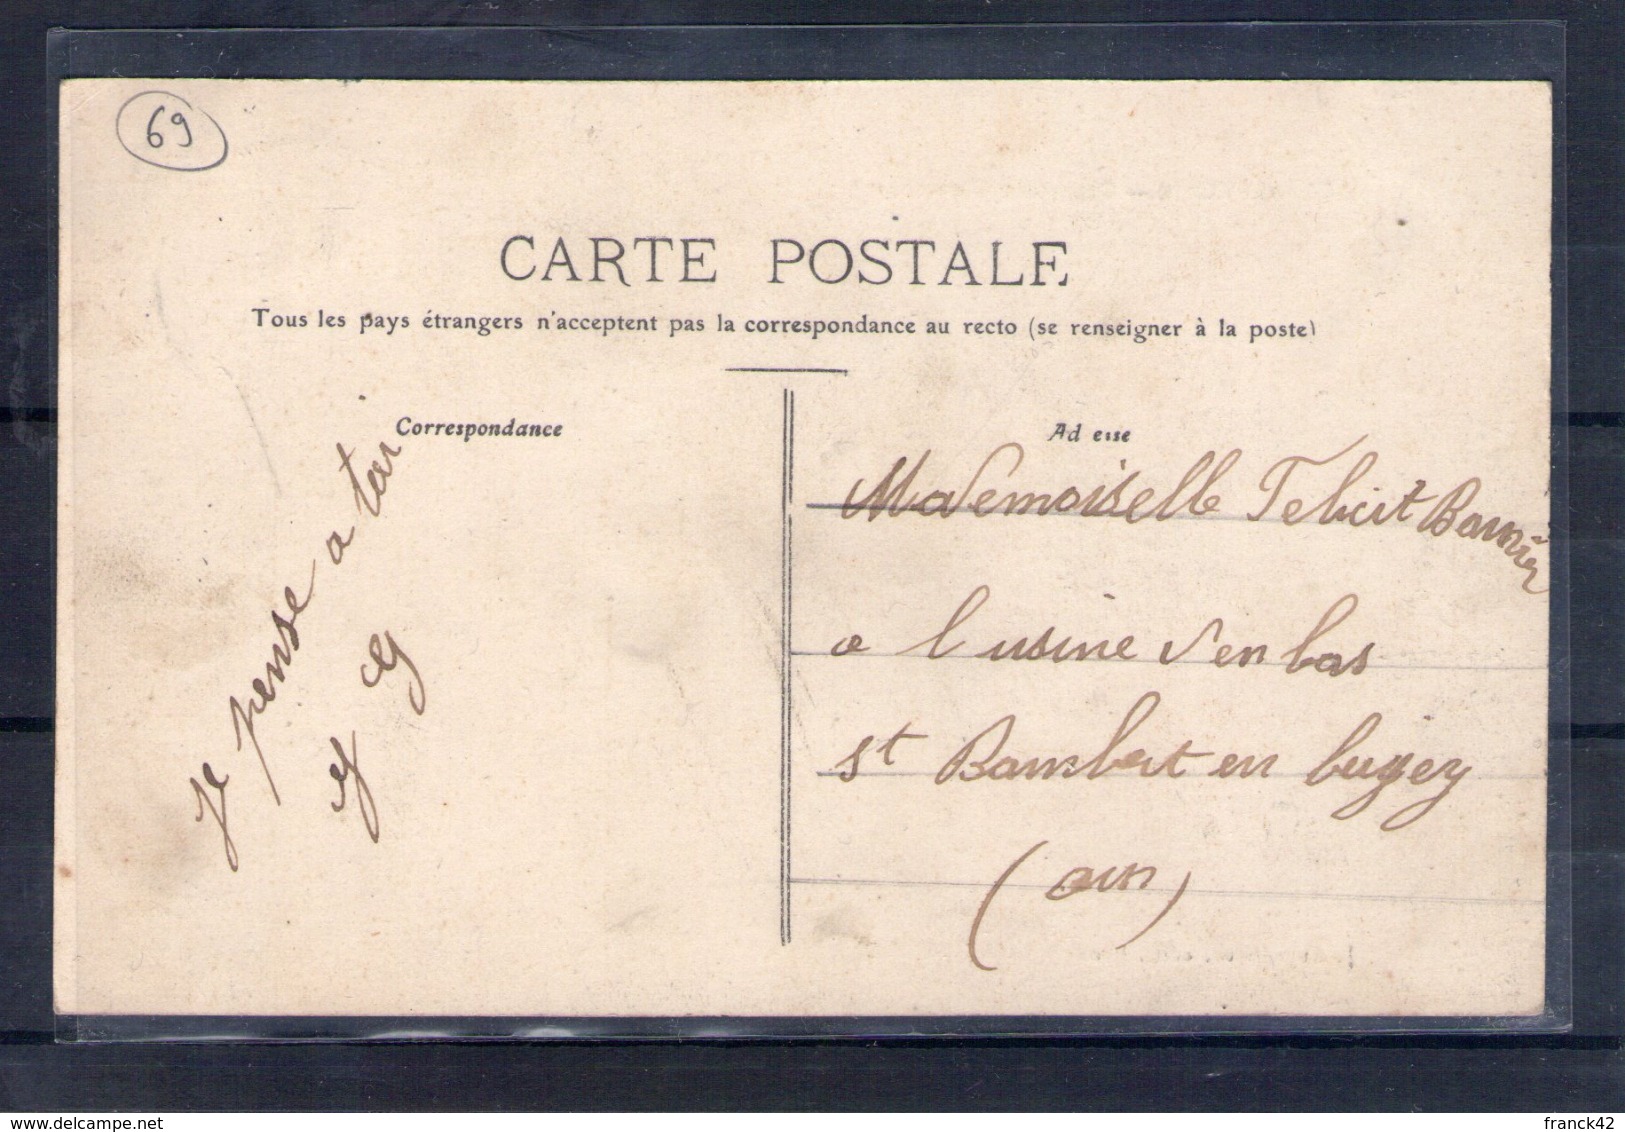 69
CARTE POSTALE
Tous les pays étrangers n'acceptent pas la correspondance au recto (se renseigner à la poste)
Correspondance
Je pense a toi
Ad esse
Mademoiselle Felicit Barnier
a l usine d'en bas
st Rambert en bugey
(ain)
delcampe.net
franck42